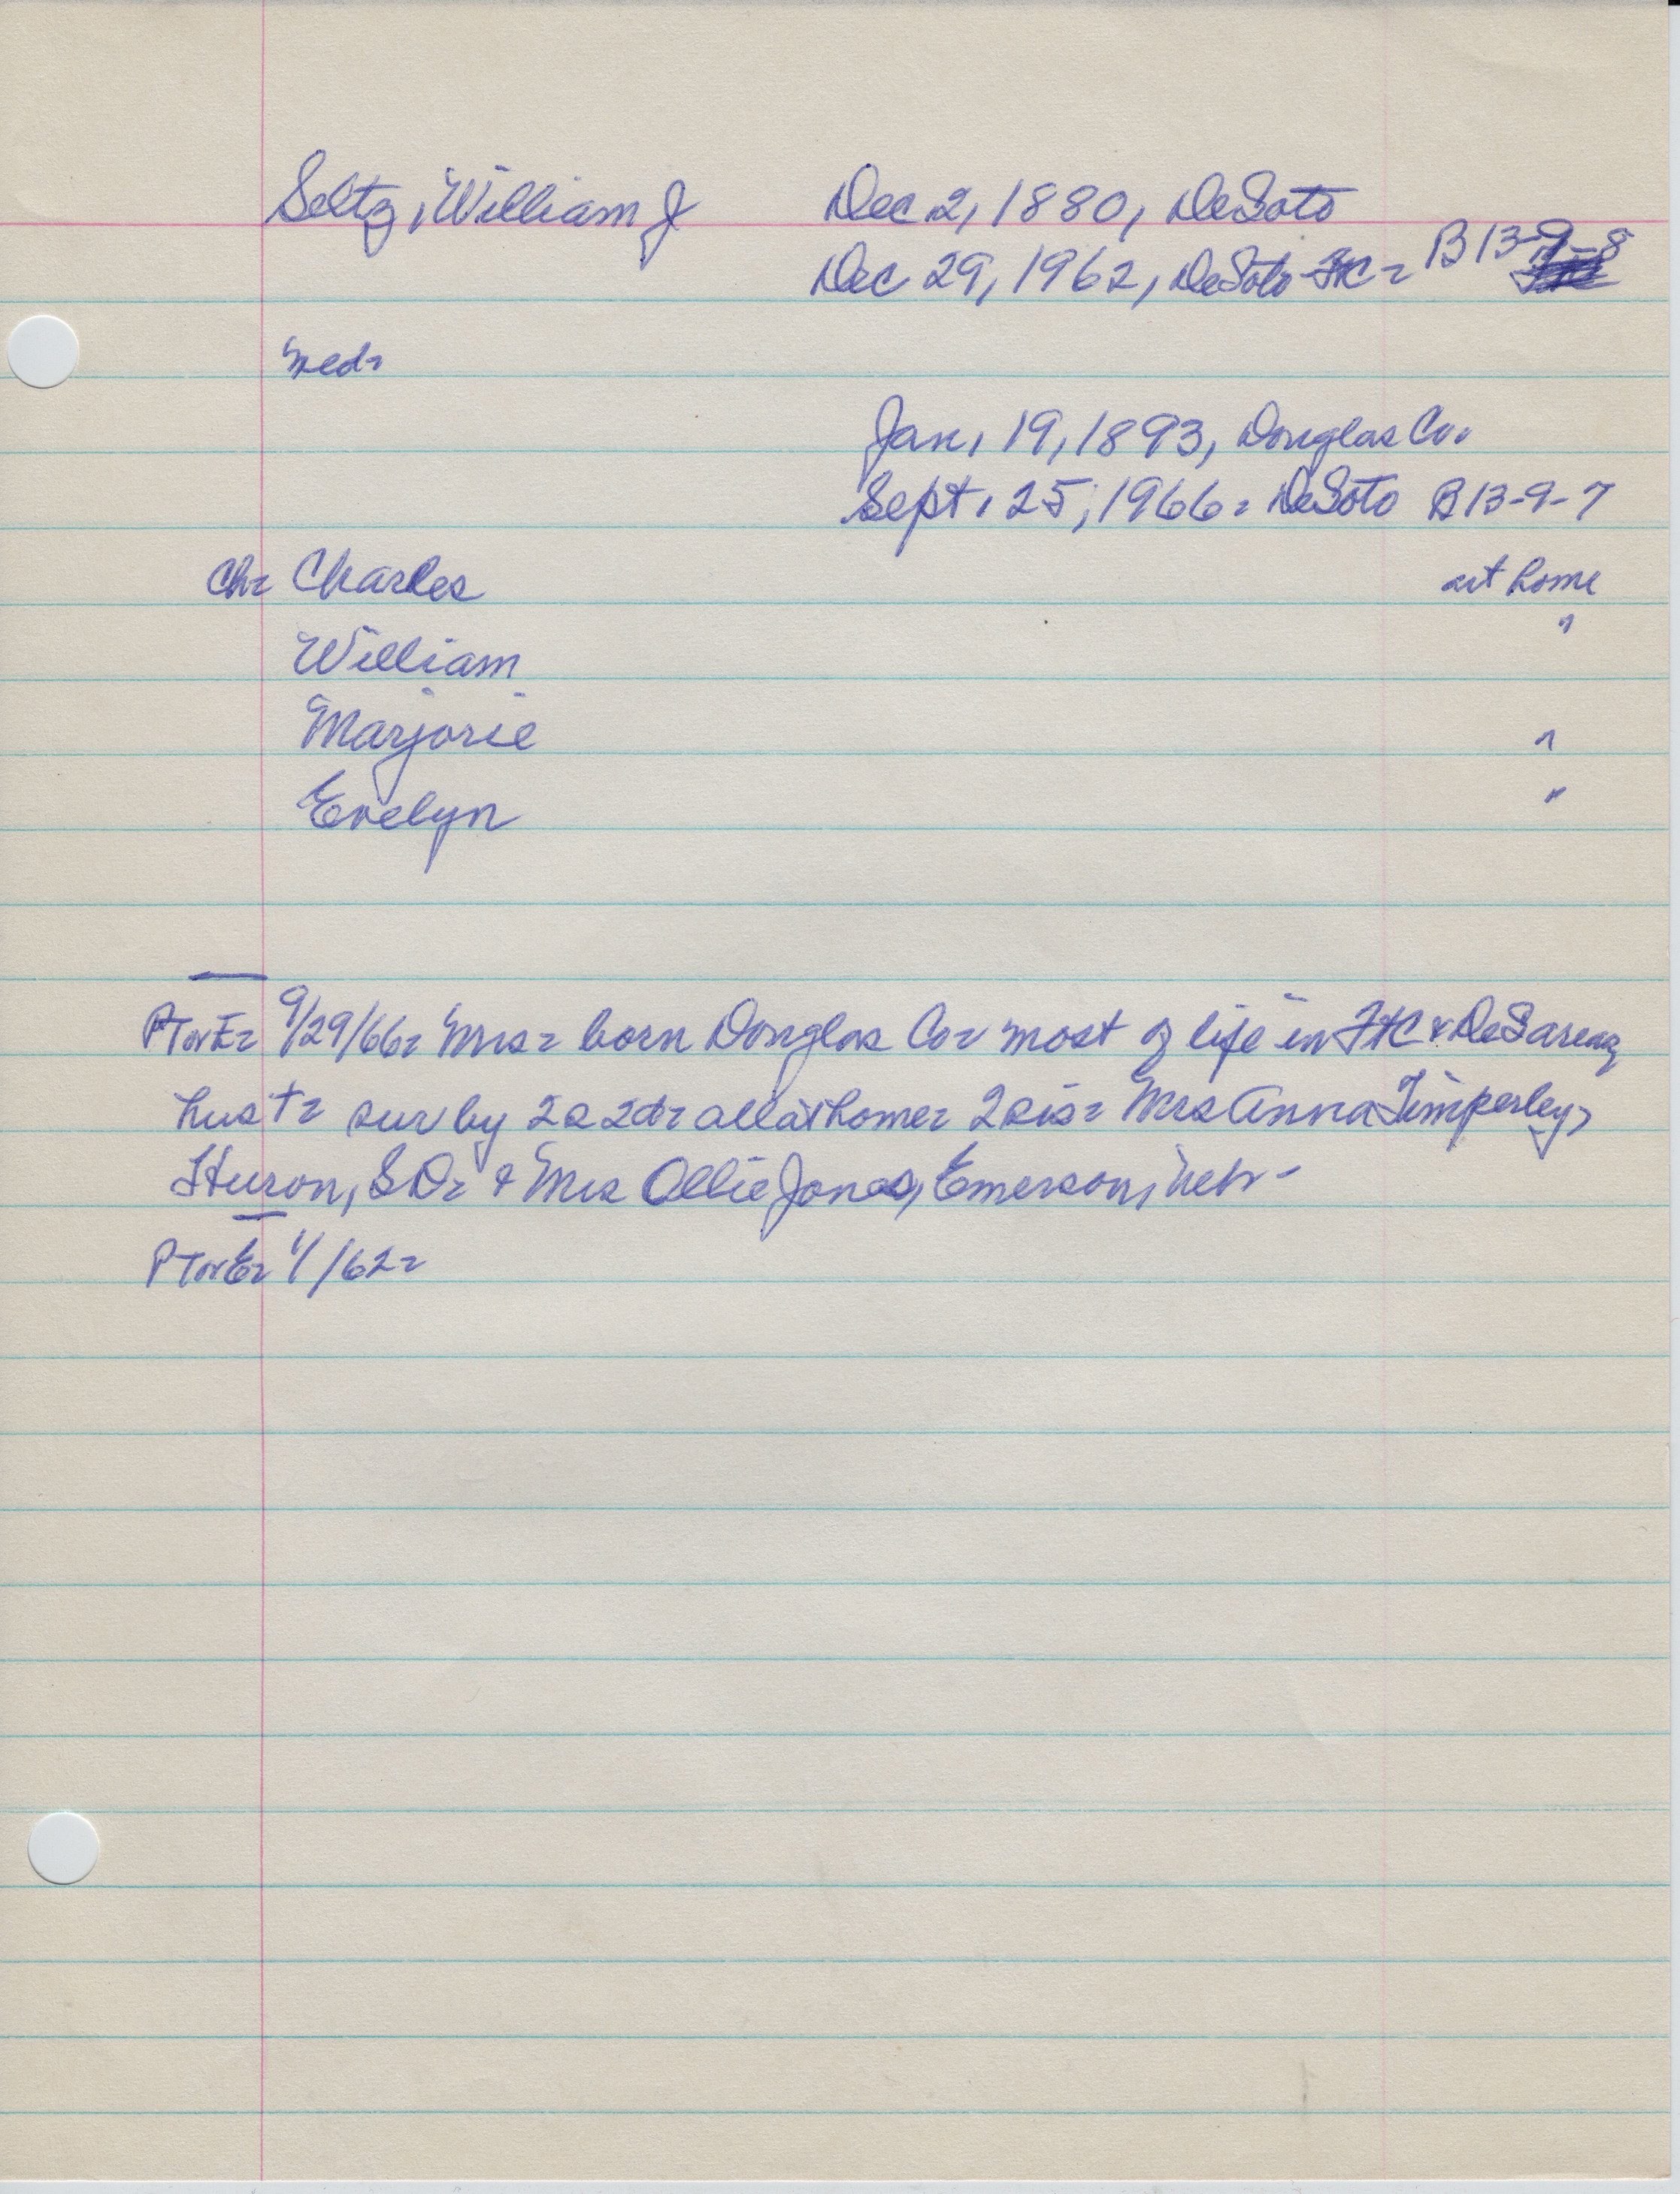 Seltz, William J Dec 2, 1880, DeSoto
Dec 29, 1962, DeSoto FtC- B 13-9-8
med-
Jan. 19, 1893, Douglas Co.
Sept. 25, 1966- DeSoto B 13-9-7
Ch- Charles at home
William "
Marjorie "
Evelyn "
PTorE- 9/29/66- Mrs- born Douglas Co- most of life in FtC & DeS area
hus†- sur by 2s 2d- all at home- 2 sis- Mrs Anna Timperley,
Huron, SD- & Mrs Ollie Jones, Emerson, Neb-
PTorE- 1/ /62-